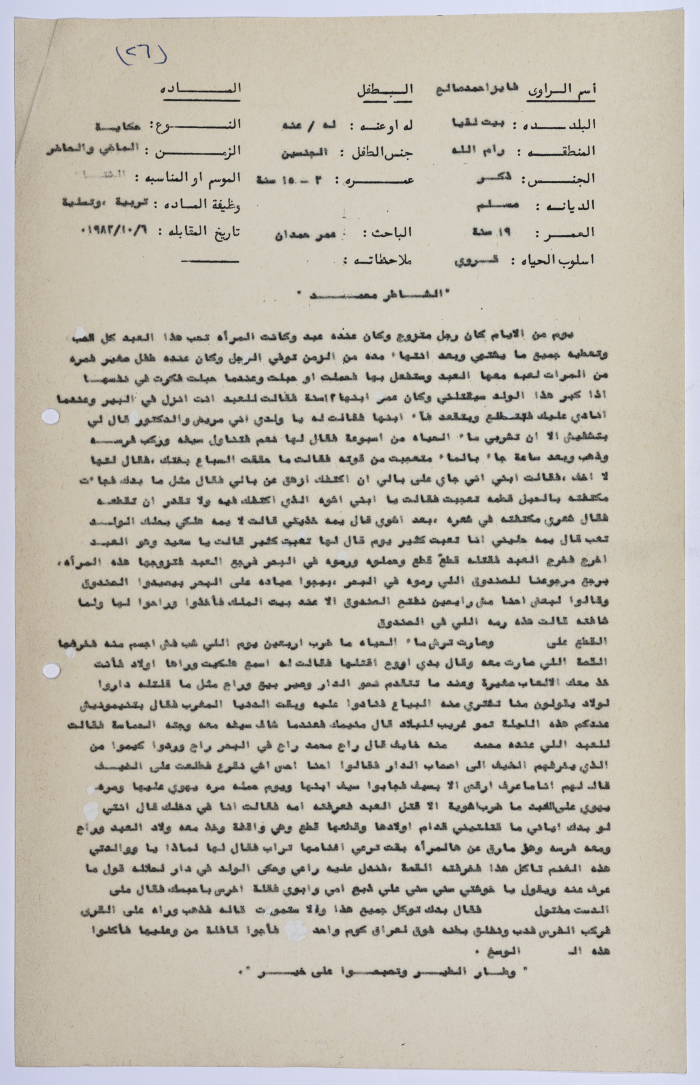 (٢٦)
أسم الراوى فايز احمد صالح الطفل المادة
البلدة : بيت لقيا له او عنه : له / عنه النوع : حكاية
المنطقه : رام الله جنس الطفل : الجنسين الزمن : الماضي والحاضر
الجنس : ذكر عمره : ٣ - ١٥ سنة الموسم او المناسبه : الشتاء
الديانه : مسلم وظيفة الماده : تربية ،وتسلية
العمر : ١٩ سنة الباحث : عمر حمدان تاريخ المقابله : ١٩٨٣/١٠/٦٠
اسلوب الحياه : قروي ملاحظاته :
"الشاطر محمد "
يوم من الايام كان رجل متزوج وكان عنده عبد وكانت المرأه تحب هذا العبد كل الحب
وتعطيه جميع ما يشتهي وبعد انتهاء مده من الزمن توفي الرجل وكان عنده طفل صغير فمره
من المرات لعبه معها العبد وستفعل بها فحملت او حبلت وعندما حبلت فكرت في نفسها
اذا كبر هذا الولد سيقتلني وكان عمر ابنها ١٢سنة فقالت للعبد انت انزل في البير وعندما
انادي عليك فتطلع ويتقعد فاء ابنها فقالت له يا ولدي اني مريض والدكتور قال لي
بتشفيش الا ان تشربي ماء الحياه من اسبوعة فقال لها نعم فتناول سيفه وركب فرسه
وذهب وبعد ساعة جاء بالماء متعجبت من قوته فقالت ما حققت السباع بختك ،فقال لتها
لا اخف ،فقالت ابني اني جاي على بالي ان اكتفك ازهق عن بالي فقال مثل ما بدك فجاءت
مكتفته بالحبل قطعه تعجبت فقالت يا ابني اشوه الذي اكتفك فيه ولا تقدر ان تقطعه
فقال شعري مكتفته في شعره ،بعد اشوي قال يمه خذيتي قالت لا يمه هلكي بحلك الولد
تعب قال يمه حليني انا تعبت كثير يوم قال لها تعبت كثير قالت يا سعيد وهو العبد
اخرج فخرج العبد فقتله قطع قطع وحملوه ورموه في البحر فرجع العبد فتزوجها هذه المرأه،
برجع مرجوعنا للصندوق اللي رموه في البحر ،بيجوا صياده على البحر بيصيدوا الصندوق
وقالوا لبعض احنا مش رايحين نفتح الصندوق الا عند بيت الملك فأخذوا وراحوا لها ولما
شافته قالت هذه رمه اللي في الصندوق
القطع على وصارت ترش ماء الحياه ما ضرب اربعين يوم اللي شب فش اجسم منه فخرفها
القصة اللي صارت معه وقال بدي اروح اقتلها فقالت له اسمع هلكيت وراها اولاد فأنت
خذ معك الالعاب صغيرة وعند ما تتقدم نحو الدار وصير بيع وراح مثل ما قلتله داروا
لولاد يقولون منا تشتري منه البياع فنادوا عليه وبقت الدنيا المغرب فقال بتنيمونيش
عندكم هذه الليلة نحو غريب للبلاد قال منيمك فعندما شاف سيفه معه وجته الحماسة فقالت
للعبد اللي عنده محمد منه خايف قال راح محمد راح في البحر راح وردوا كيموا من
الذي يترفهم الضيف الى اصحاب الدار فقالوا احنا احس اشي نقرع فطلعت على الضيف
قال لهم انا ماعرف ارقص الا بسيف فجابوا سيف ابنها ويوم حمله مره يهوي عليها ومره
يهوي على العبد ما ضرب اشوية الا قتل العبد فعرفته امه فقالت انا في دخلك قال انتي
لو بدك اياني ما قتلتيني قدام اولادها وقطعها قطع وهي واقفة وخذ معه ولاد العبد وراح
ومعه فرسه وهو مارق عن هالمرأه بقت ترعي اغنامها تراب فقال لها لماذا يا ووالدتي
هذه الغنم تاكل هذا فخرفته القصة ،فندل عليه راعي وحكى الولد في دار لحلاله قول ما
عرف عنه ويقول يا خوفتي سني سني علي ذبح امي وابوي فقلة اخرس باحبسك فقال على
الدست مفتول فقال بدك توكل جميع هذا ولا ستموت قاله فذهب وراه على القرى
فركب الفرس فدب ونفلق بطنه فوق لعراق كوم واحد فأجوا قافلة من وعليها فأكلوا
هذه الـ الوسخ .
" وطار الطير وتصبحوا على خير ".